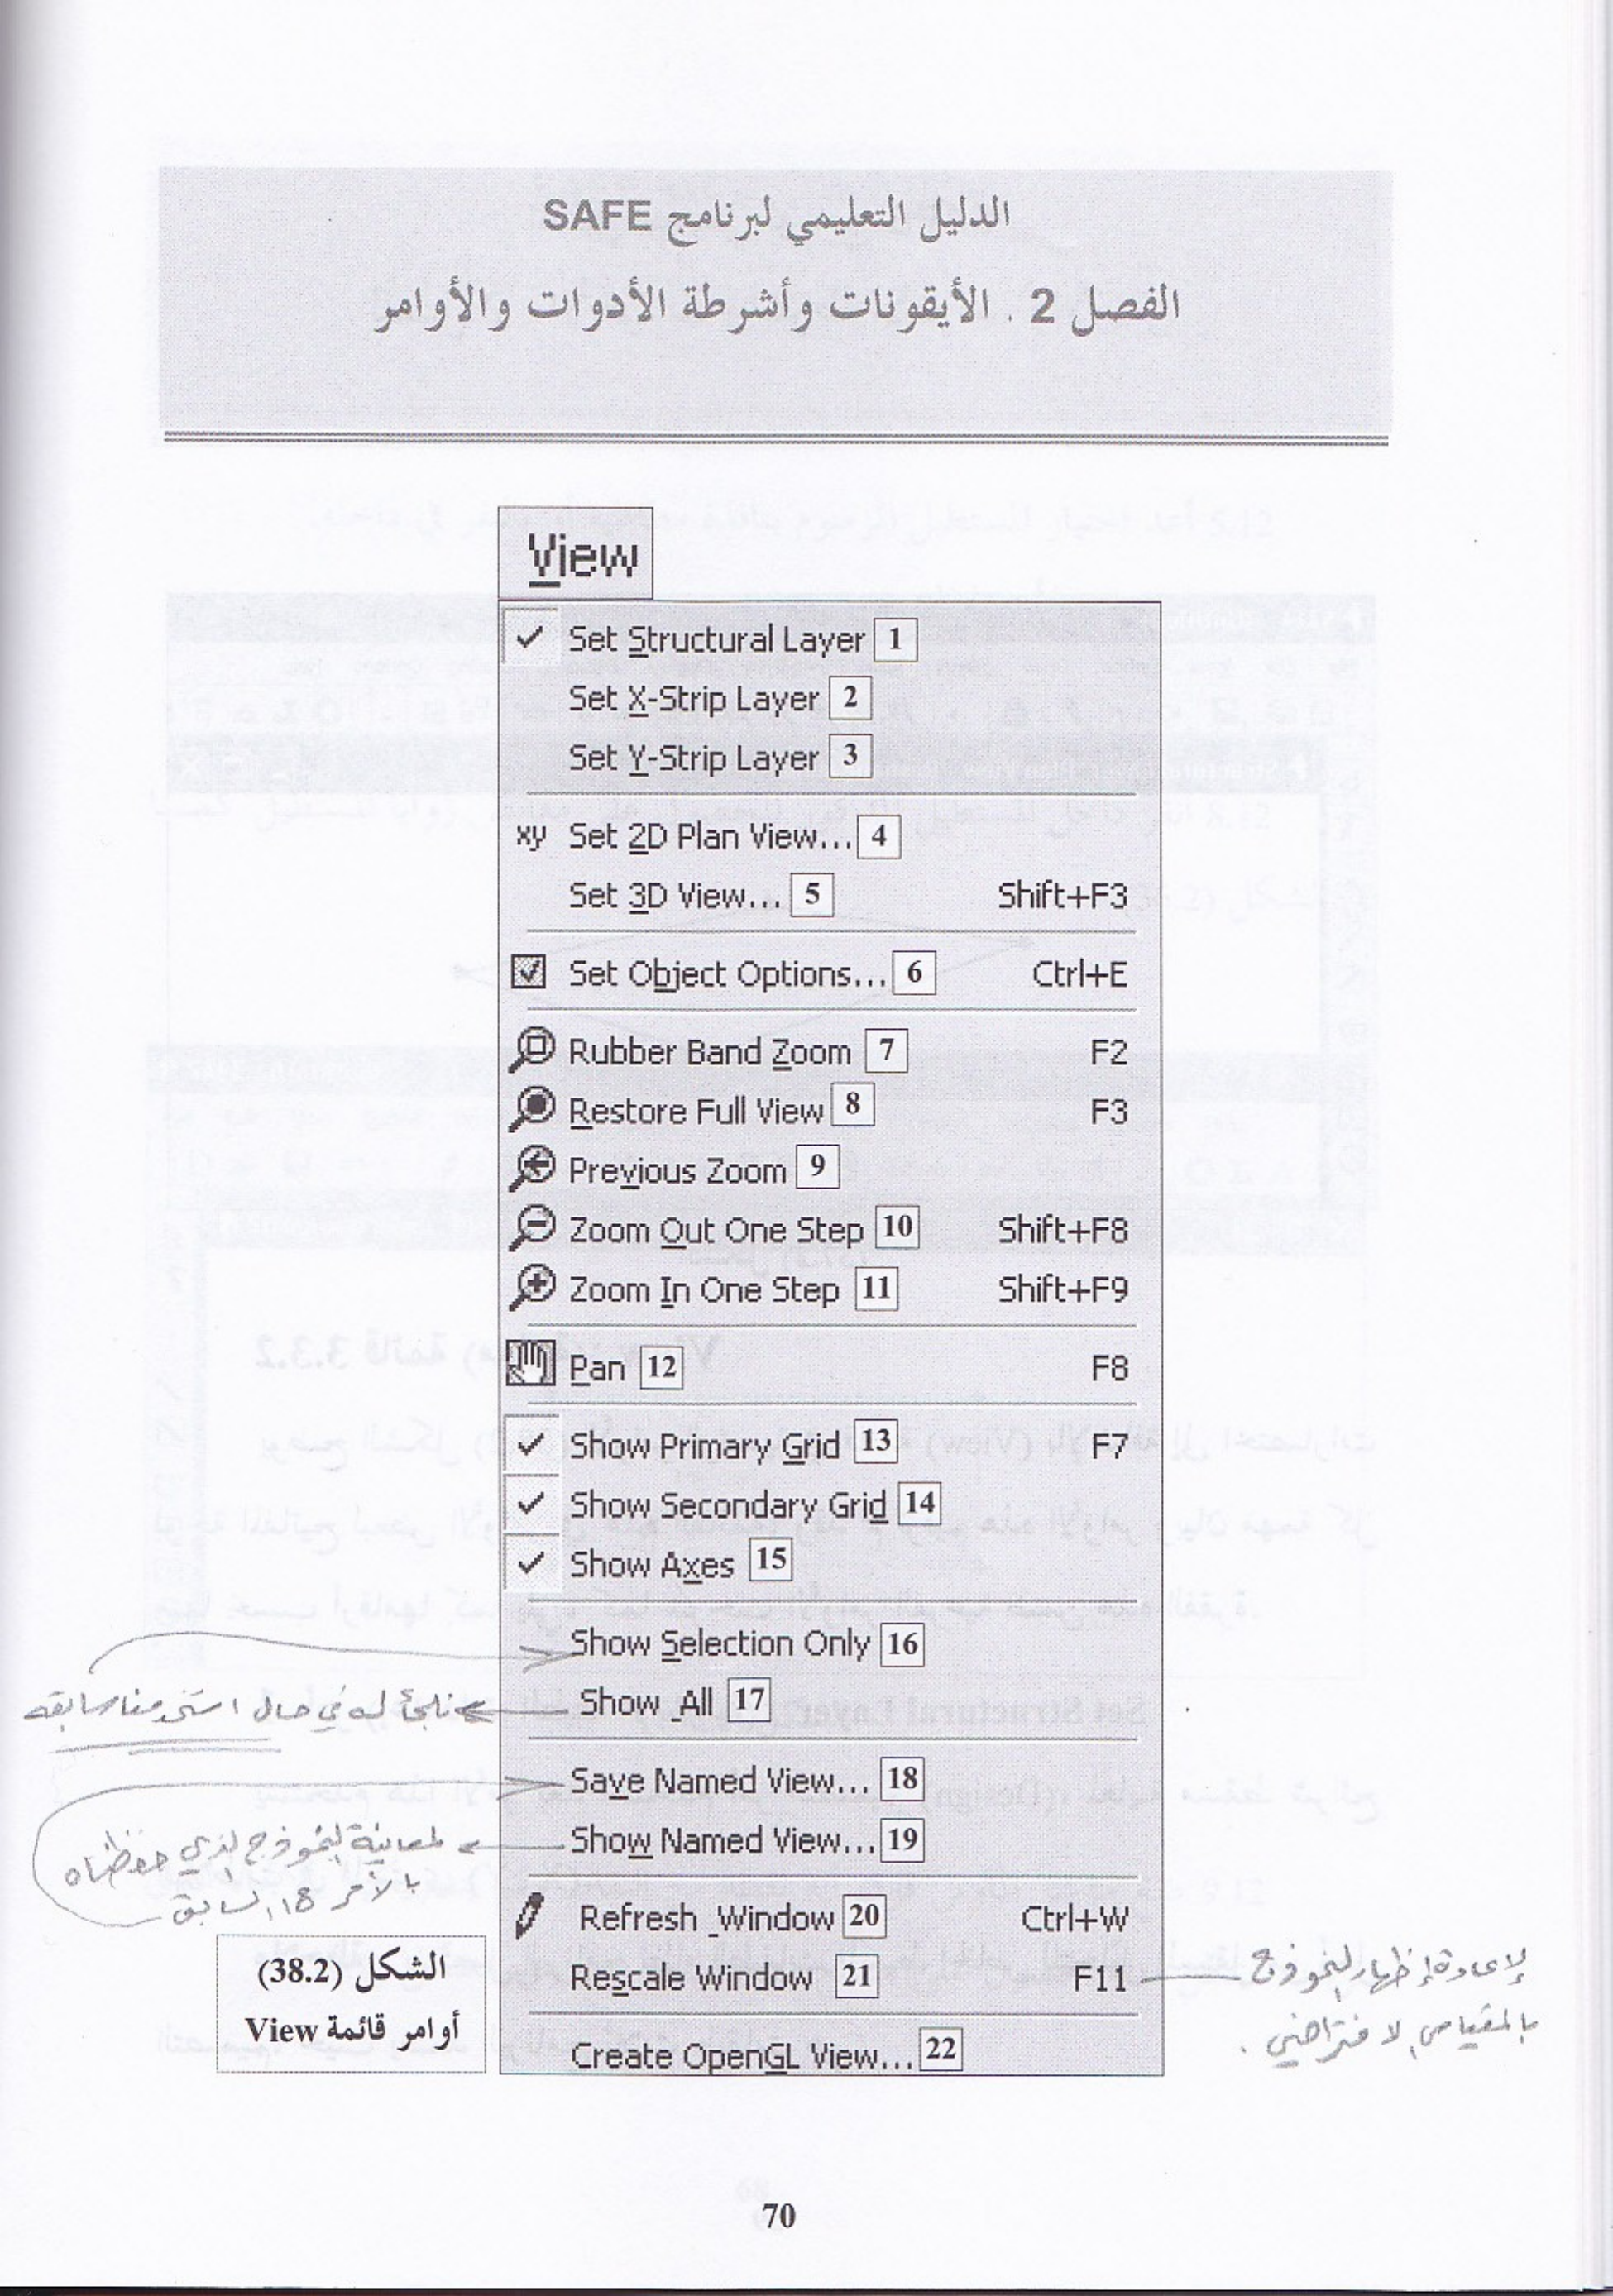 الدليل التعليمي لبرنامج SAFE
الفصل 2 . الأيقونات وأشرطة الأدوات والأوامر
View
Set Structural Layer 1
Set X-Strip Layer 2
Set Y-Strip Layer 3
xy Set 2D Plan View... 4
Set 3D View... 5 Shift+F3
Set Object Options... 6 Ctrl+E
Rubber Band Zoom 7 F2
Restore Full View 8 F3
Previous Zoom 9
Zoom Out One Step 10 Shift+F8
Zoom In One Step 11 Shift+F9
Pan 12 F8
Show Primary Grid 13 F7
Show Secondary Grid 14
Show Axes 15
Show Selection Only 16
Show _All 17
نلجأ له في حال استخدمنا سابقه
Save Named View... 18
Show Named View... 19
لمعاينة النموذج الذي حفظناه
بالأمر 18 السابق
Refresh _Window 20 Ctrl+W
Rescale Window 21 F11
لإعادة إظهار النموذج
بالمقياس الافتراضي .
Create OpenGL View... 22
الشكل (38.2)
أوامر قائمة View
70